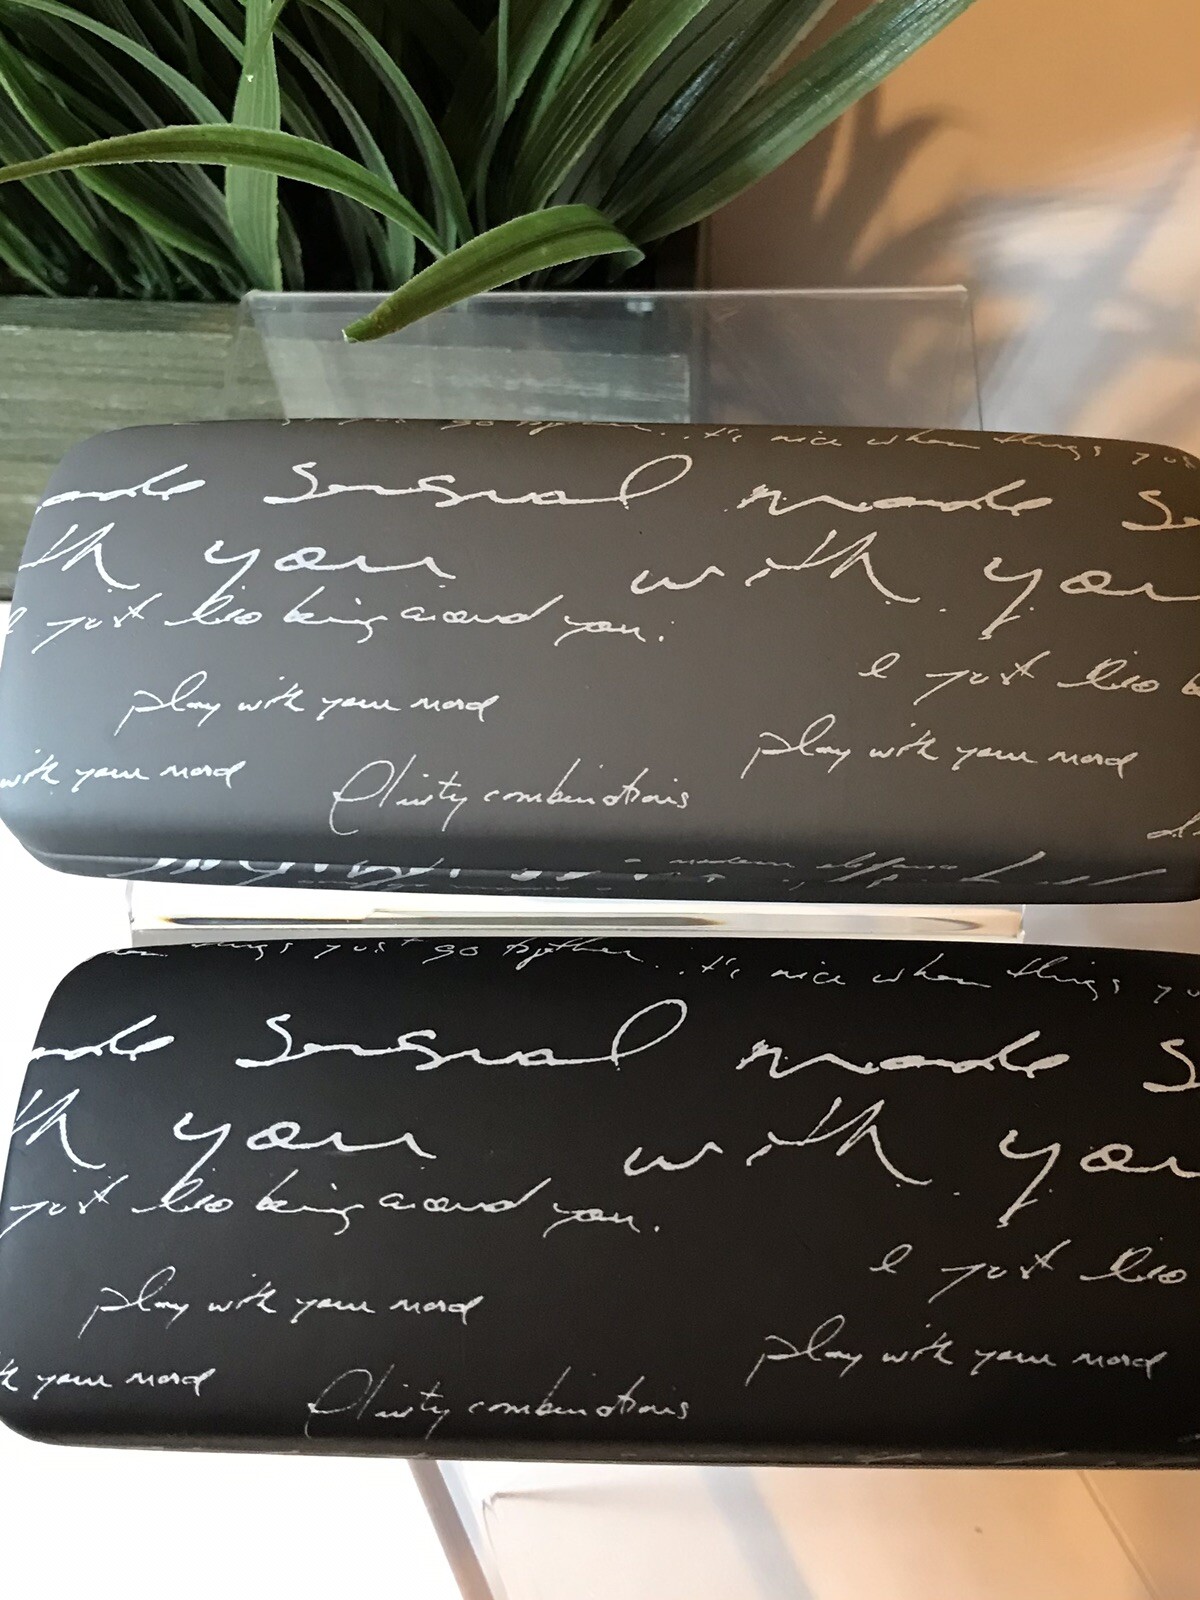 go together... it's nice when things jus
made sensual made se
th you with you
I just live being around you. I just live b
play with your mood play with your mood
with your mood flirty combinations
modern
things just go together... it's nice when things ju
made sensual made s
th you with you
just live being around you. I just live
play with your mood play with your mood
your mood flirty combinations